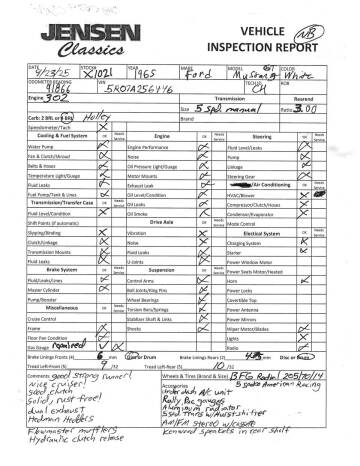 JENSEN
Classics
VEHICLE
INSPECTION REPORT
NB
DATE STOCK# YEAR MAKE MODEL COLOR
9/23/25 X1021 1965 Ford Mustang GT White
ODOMETER READING VIN TECH ROR
91866 5R07A256446 CH
Engine 302 Transmission Rearend
Size 5 spd. manual Ratio 3.00
Carb: 2 BRL or 4 BRL Holley
Speedometer/Tach OK Needs Service
Cooling & Fuel System Engine Steering
Water Pump Engine Performance Fluid Level/Leaks
Fan & Clutch/Shroud Noise Pump
Belts & Hoses Oil Pressure Light/Gauge Linkage
Temperature Light/Gauge Motor Mounts Steering Gear
Fluid Leaks Exhaust Leak /Air Conditioning
Fuel Pump/Tank & Lines Oil Level/Condition HVAC/Blower
Transmission/Transfer Case Fluid Leaks Compressor/Clutch/Hoses
Fluid Level/Condition Oil Smoke Condensor/Evaporator
Shift Points (if automatic) Drive Axle Mode Control
Slipping/Binding Vibration Electrical System
Clutch/Linkage Noise Charging System
Transmission Mounts Fluid Level/Leaks Starter
Fluid Leaks U-Joints Power Window Motor
Brake System Suspension Power Seats Motor/Heated
Fluid Level/Leaks Control Arms Horn
Master Cylinder Ball Joints/King Pins Power Locks
Pump/Booster Wheel Bearings Covertible Top
Miscellaneous Torsion Bars/Springs Power Antenna
Cruise Control Stabilizer Shaft & Links Power Mirrors
Frame Shocks Wiper Motor/Blades
Floor Pan Condition Lights
Gas Gauge repaired Radio
Brake Linings Fronts (4) 6 mm Disc or Drum Brake Linings Rears (2) mm Disc or Drum
Tread Left-Front (5) 9 /32 Tread Left-Rear (5) 10 /32
Comments good strong runner! Wheels & Tires (Brand & Size) BFG Radial 205/70/14
nice cruiser! Accessories 5 spoke American Racing
good clutch underdash A/C unit
Solid, rust free! Rally Pac gauges
dual exhaust Aluminum radiator
Hedman Hedders 5spd Trans w/Hurst shifter
Flowmaster mufflers AM/FM stereo w/cassette
Hydraulic clutch release Kenwood speakers in rear shelf